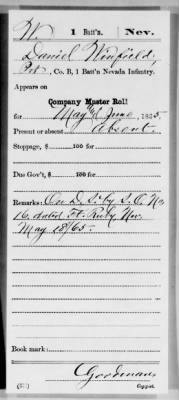 W 1 Batt'n. Nev.
Daniel Winfield,
Pvt, Co. B, 1 Batt'n Nevada Infantry.
Appears on
Company Muster Roll
for May & June, 1865.
Present or absent Absent.
Stoppage, $ 100 for
Due Gov't, $ 100 for
Remarks: On D. S. by S. O. No
16, dated Ft. Ruby, Nev.
May 18/65.
Book mark:
Goodman
Copyist.